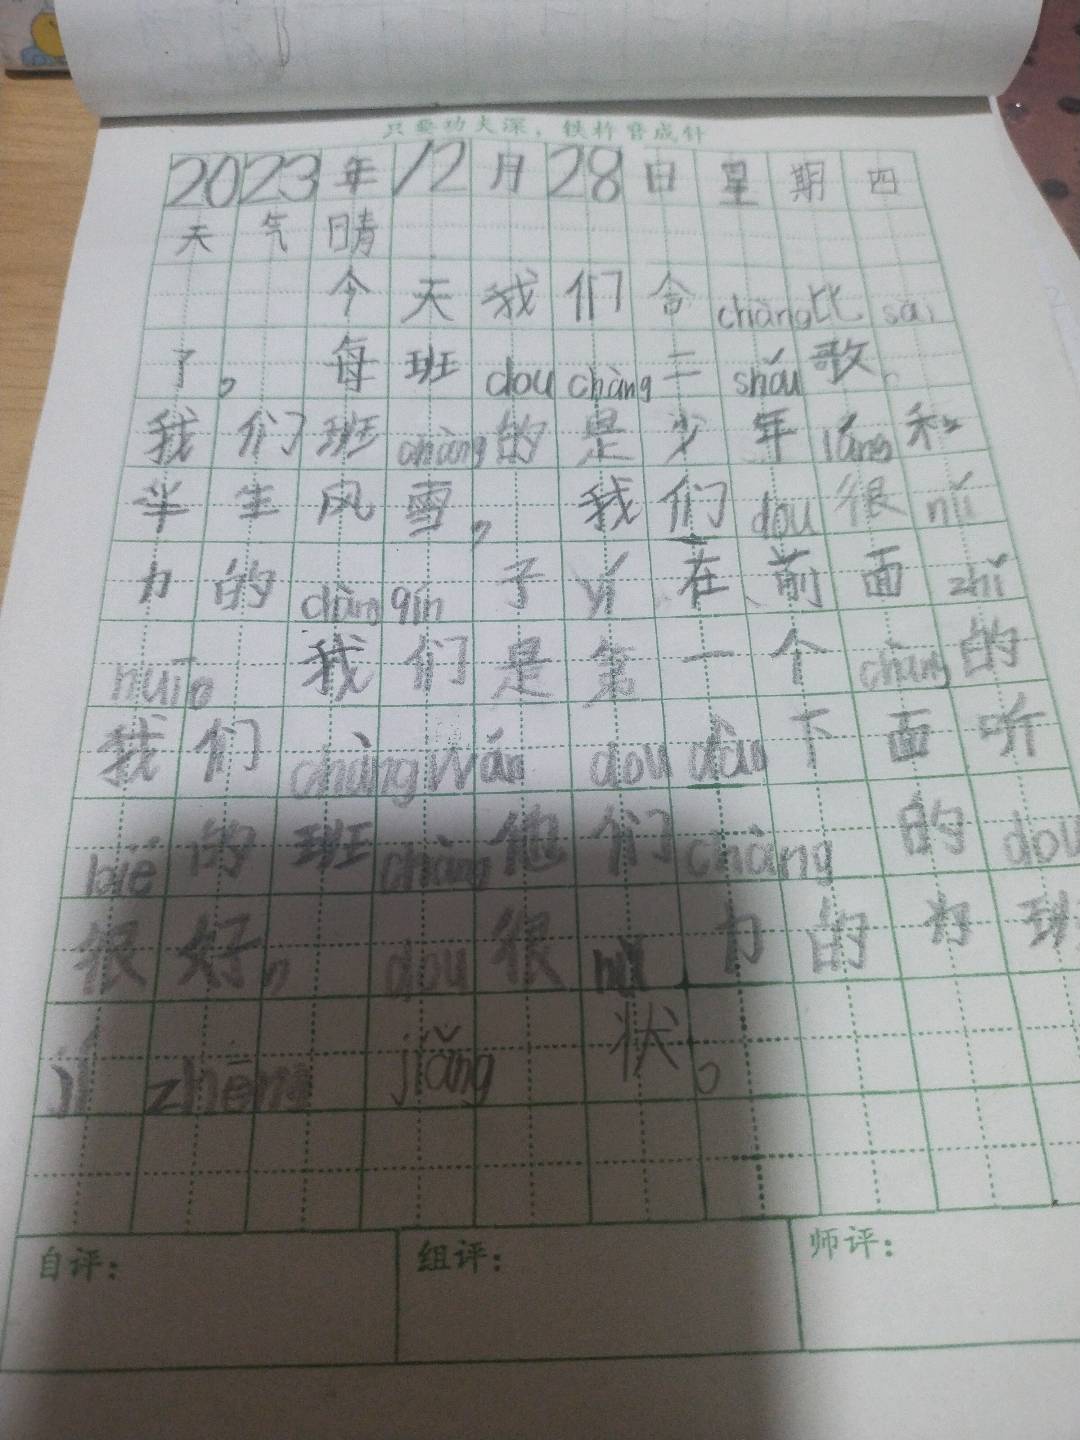 只要功夫深，铁杵磨成针
2023年12月28日星期四
天气晴
今天我们合chàng比sài
了。每班dou chàng二shóu歌。
我们班chàng的是少年lǎng和
半生风雪，我们dou很nǔ
力的chàng qín子yí在前面zhǐ
huī。我们是第一个chàng的
我们chàng wán dou dào下面听
bié的班chàng他们chàng的dou
很好，dou很nǔ力的为班
jí zhēng jiǎng状。
自评：
组评：
师评：